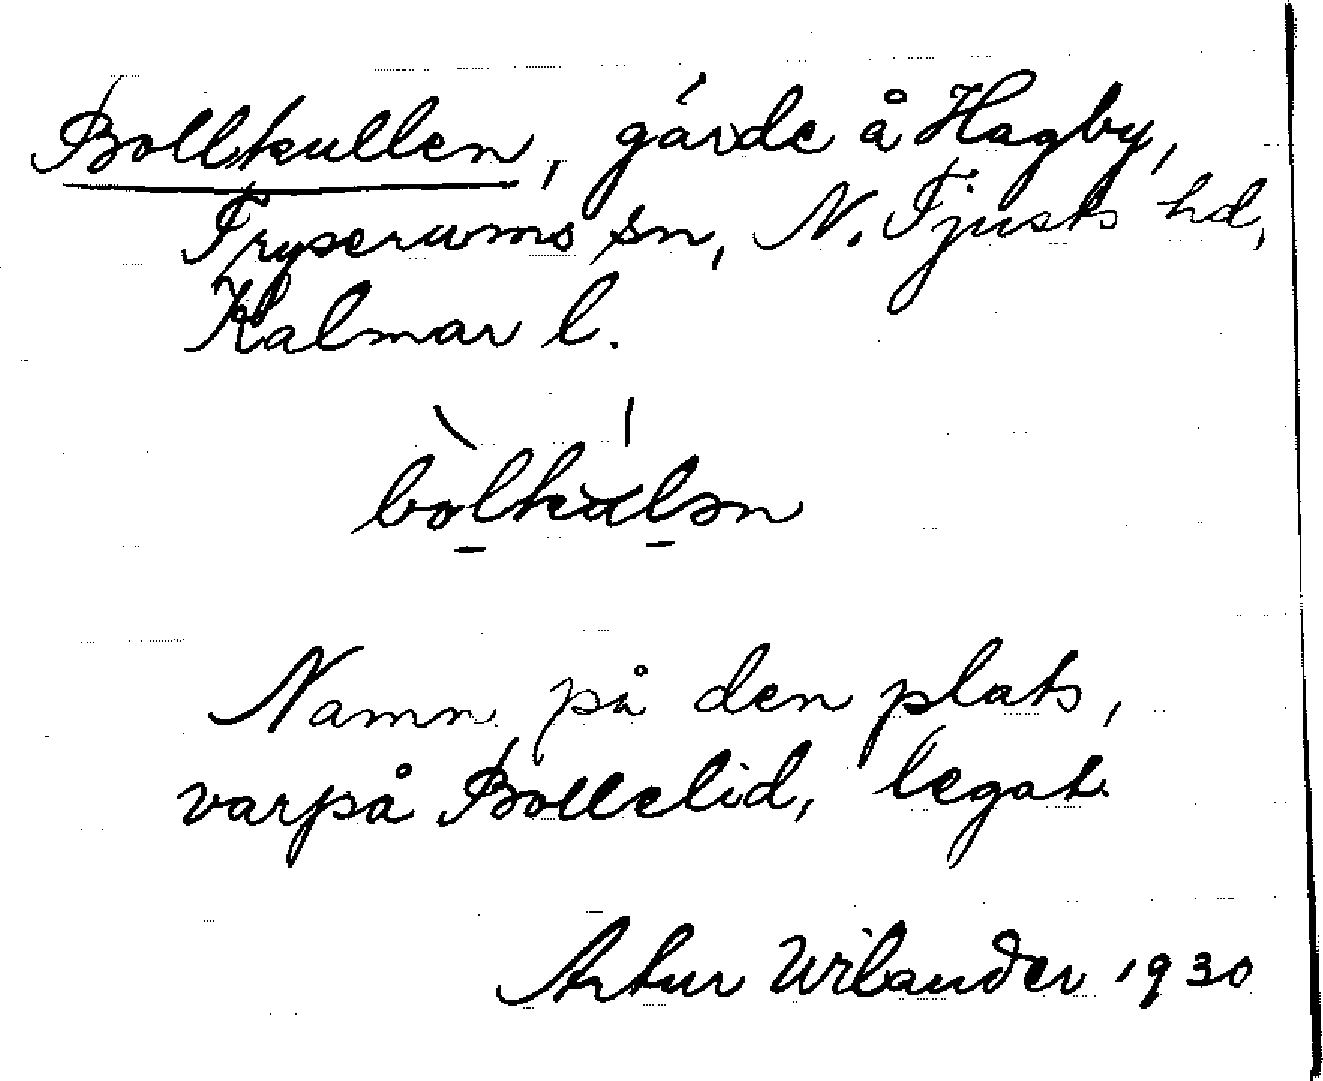 Bollkullen, gärde å Hagby,
Tryserums sn, N. Tjusts hd,
Kalmar l.
bòlkúlən
Namn på den plats,
varpå Bollelid, legat.
Artur Wilander 1930